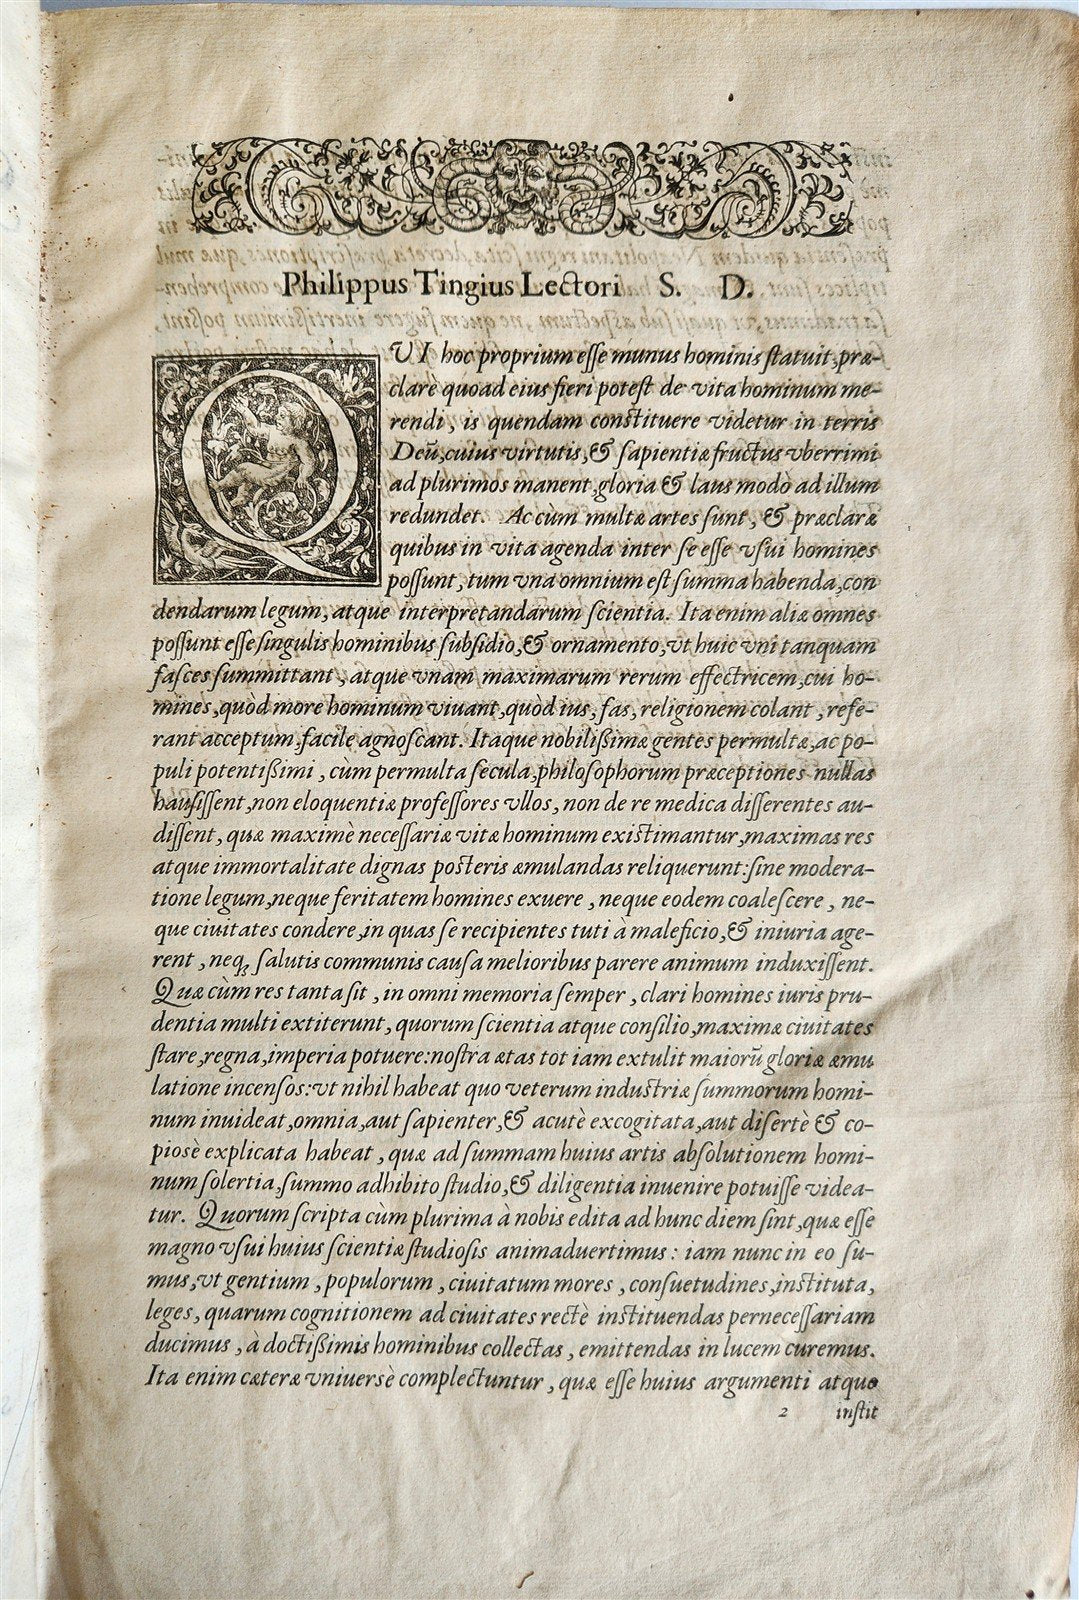 Philippus Tingius Lectori S. D.
QVI hoc proprium esse munus hominis statuit, præ-
clarè quoad eius fieri potest de vita hominum me-
rendi, is quendam constituere videtur in terris
Deũ, cuius virtutis, & sapientiæ fructus vberrimi
ad plurimos manent, gloria & laus modò ad illum
redundet. Ac cùm multæ artes sunt, & præclaræ
quibus in vita agenda inter se esse vsui homines
possunt, tum vna omnium est summa habenda, con
dendarum legum, atque interpretandarum scientia. Ita enim aliæ omnes
possunt esse singulis hominibus subsidio, & ornamento, vt huic vni tanquam
fasces summittant, atque vnam maximarum rerum effectricem, cui ho-
mines, quòd more hominum viuant, quòd ius, fas, religionem colant, refe-
rant acceptum, facile agnoscant. Itaque nobilißimæ gentes permultæ, ac po-
puli potentißimi, cùm permulta secula, philosophorum præceptiones nullas
hausissent, non eloquentiæ professores vllos, non de re medica disserentes au-
dissent, quæ maximè necessariæ vitæ hominum existimantur, maximas res
atque immortalitate dignas posteris æmulandas reliquerunt: sine modera-
tione legum, neque feritatem homines exuere, neque eodem coalescere, ne-
que ciuitates condere, in quas se recipientes tuti à maleficio, & iniuria age-
rent, neq; salutis communis causa melioribus parere animum induxissent.
Quæ cùm res tanta sit, in omni memoria semper, clari homines iuris pru-
dentia multi extiterunt, quorum scientia atque consilio, maximæ ciuitates
stare, regna, imperia potuere: nostra ætas tot iam extulit maiorũ gloriæ æmu
latione incensos: vt nihil habeat quo veterum industriæ summorum homi-
num inuideat, omnia, aut sapienter, & acutè excogitata, aut disertè & co-
piosè explicata habeat, quæ ad summam huius artis absolutionem homi-
num solertia, summo adhibito studio, & diligentia inuenire potuisse videa-
tur. Quorum scripta cùm plurima à nobis edita ad hunc diem sint, quæ esse
magno vsui huius scientiæ studiosis animaduertimus: iam nunc in eo su-
mus, vt gentium, populorum, ciuitatum mores, consuetudines, instituta,
leges, quarum cognitionem ad ciuitates rectè instituendas pernecessariam
ducimus, à doctißimis hominibus collectas, emittendas in lucem curemus.
Ita enim cæteræ vniuersè complectuntur, quæ esse huius argumenti atque
2 instit